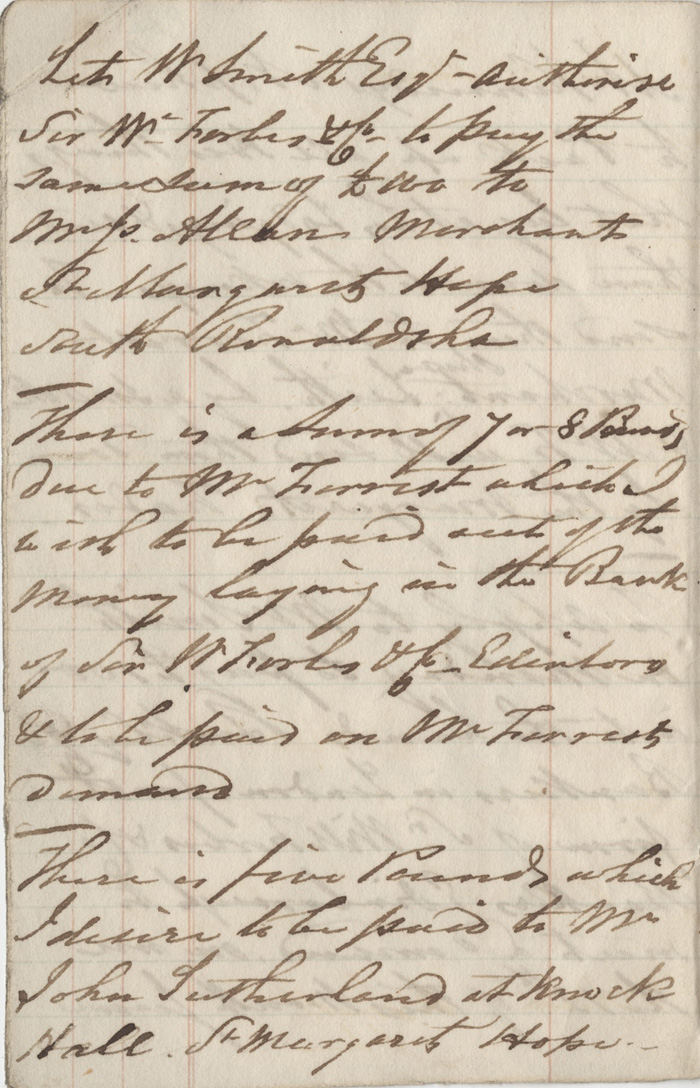 Let W Smith Esqr - authorise
Sir Wm Forbes & Co - to pay the
same sum of £ 100 to
Messrs. Allans Merchants
St Margarets Hope
South Ronaldsha
There is a Sum of 7 or 8 Pounds
due to Mr Forrest which I
wish to be paid out of the
money laying in the Bank
of Sir W Forbes & Co - Edinboro
& to be paid on Mr Forrests
demand
There is five Pounds which
I desire to be paid to Mr
John Sutherland at Knock
Hall. St Margarets Hope. -